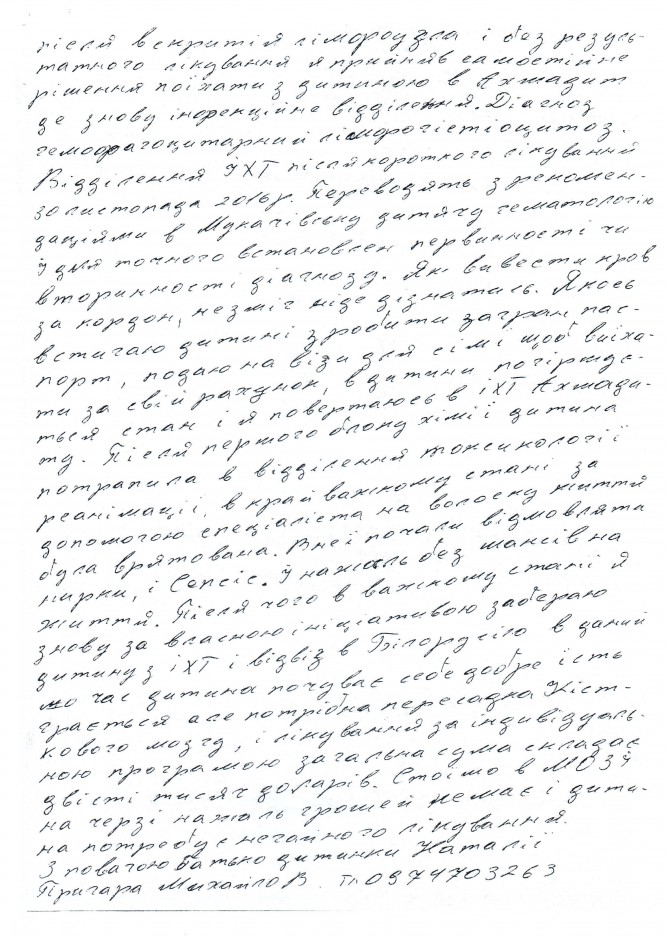 після вскриття лімфоузла і без резуль-
татного лікування я прийняв самостійне
рішення поїхати з дитиною в Ахмадит
де знову інфекційне відділення. Діагноз
гемофагоцитарний лімфогістіоцитоз.
Відділення ІХТ після короткого лікування
30 листопада 2016 р. Переводять з рекомен-
даціями в Мукачівську дитячу гематологію
і для точного встановлен первинності чи
вторинності діагнозу. Як вивести кров
за кордон, незміг ніде дізнатись. Якось
встигаю дитині зробити загран пас-
порт, подаю на візи для сімї щоб виїха-
ти за свій рахунок, в дитини погіршує-
ться стан і я повертаюсь в ІХТ Ахмади-
ту. Після першого блоку хімії дитина
потрапила в відділення токсикології
реанімації, в край важкому стані за
допомогою спеціаліста на волоску життя
була врятована. В неї почали відмовляти
нирки, і Сепсіс. І нажаль без шансів на
життя. Після чого в важкому стані я
знову за власною ініціативою забераю
дитину з ІХТ і відвіз в Білорусію в даний
мо час дитина почуває себе добре їсть
грається але потрібна пересадка Кіст-
кового мозгу, і лікування за індивідуаль-
ною програмою загальна сума складає
двісті тисяч доларів. Стоїмо в МОЗУ
на черзі нажаль грошей немає і дити-
на потребує негайного лікування.
З повагою батько дитинки Наталії
Пригара Михайло В. Тл 0974703263